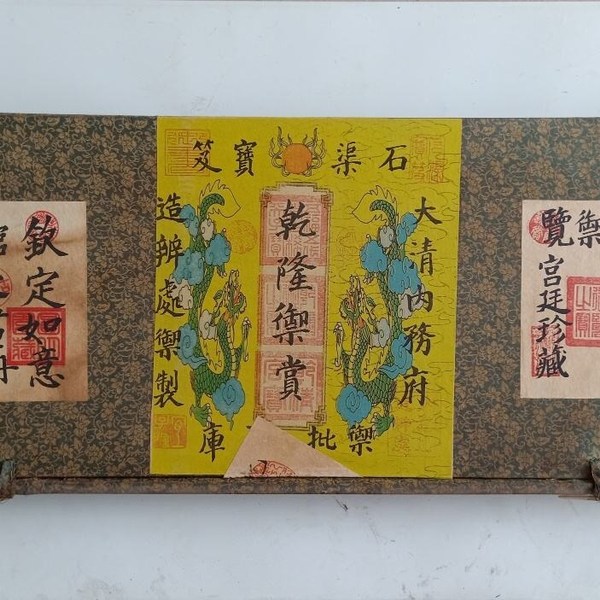 禦
覽宮廷珍藏
石渠寶笈
大清内務府
乾隆禦賞
造辨處禦製
禦批
庫
欽定如意